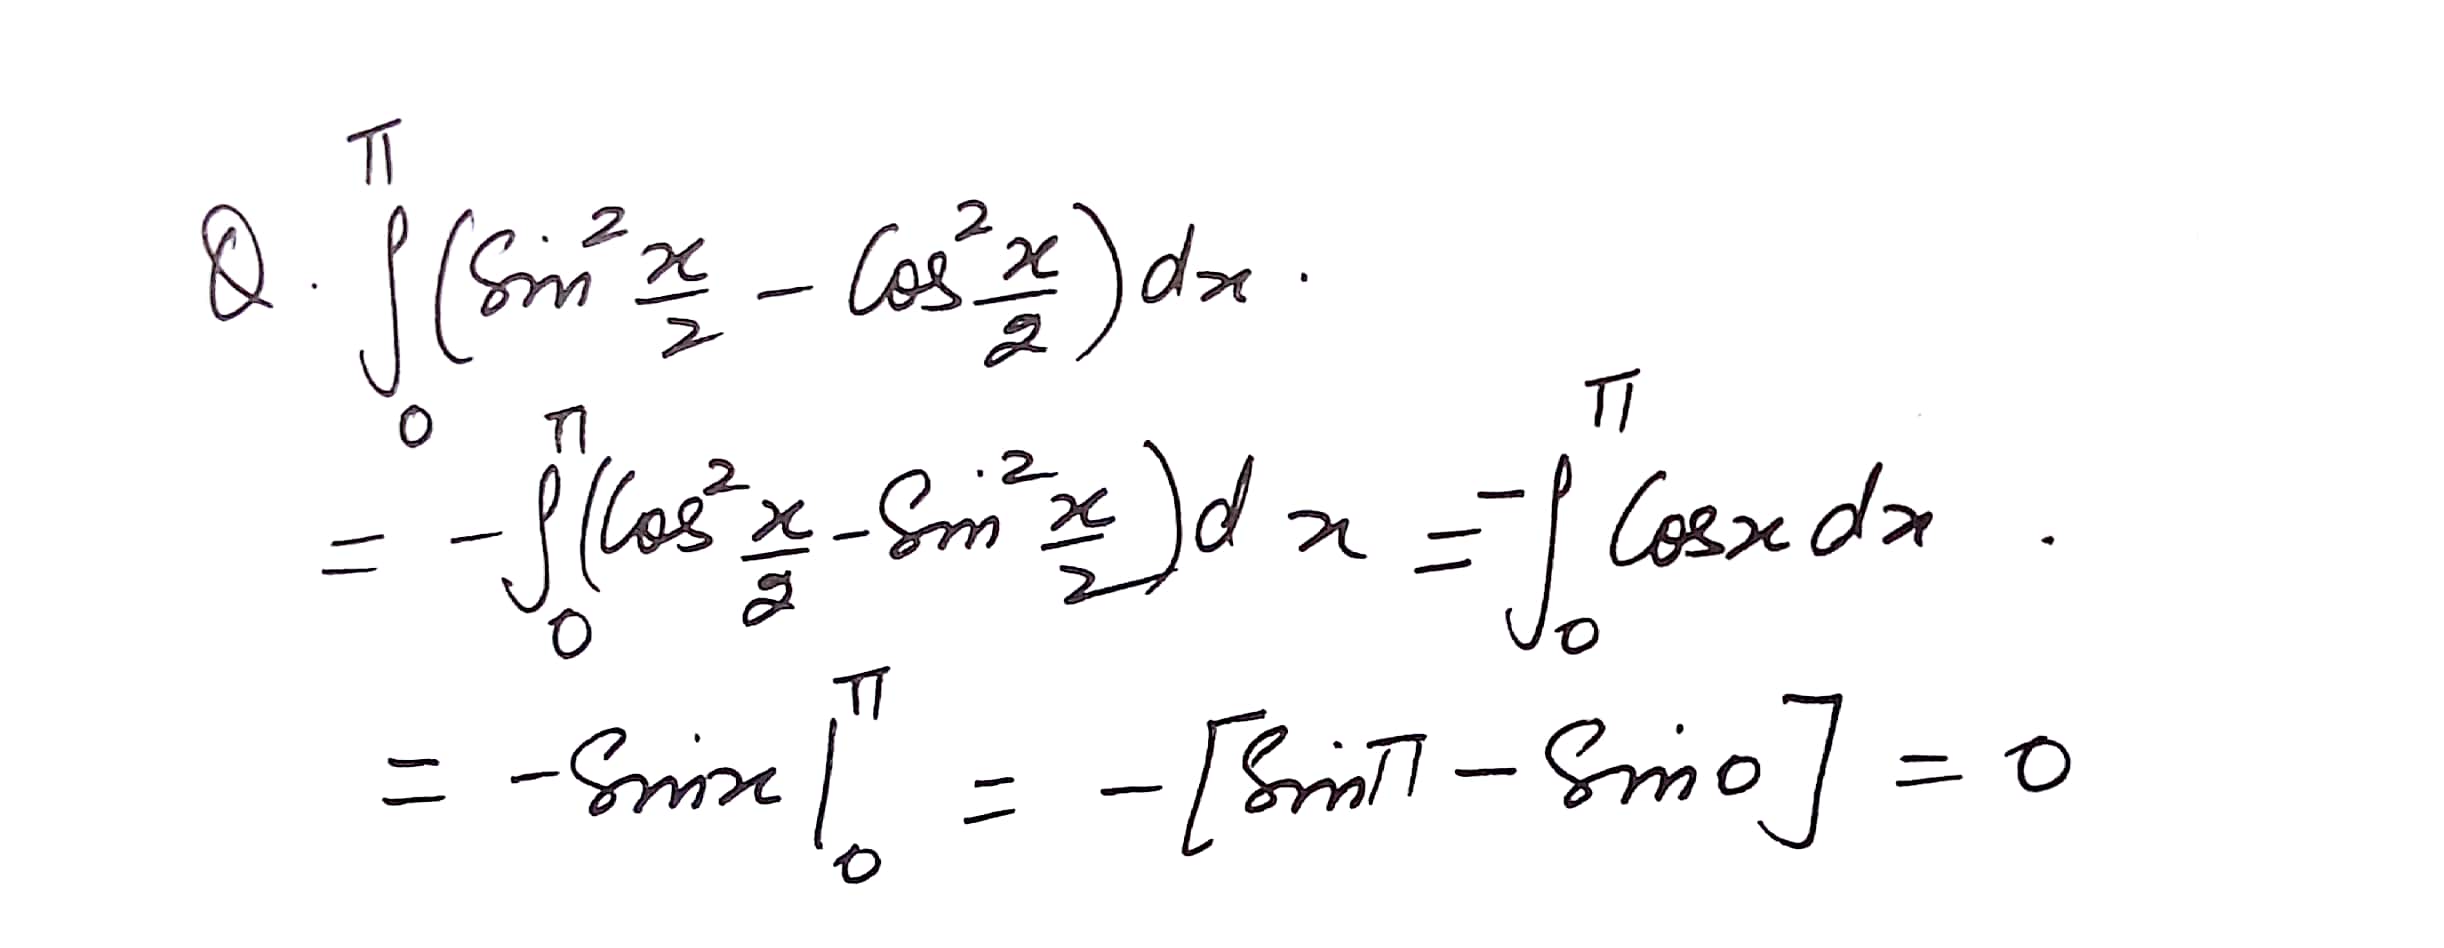 Q. ∫₀^π (Sin² x/2 - Cos² x/2) dx.
= -∫₀^π (Cos² x/2 - Sin² x/2) dx = -∫₀^π Cosx dx.
= -Sinx |₀^π = -[Sinπ - Sin0] = 0